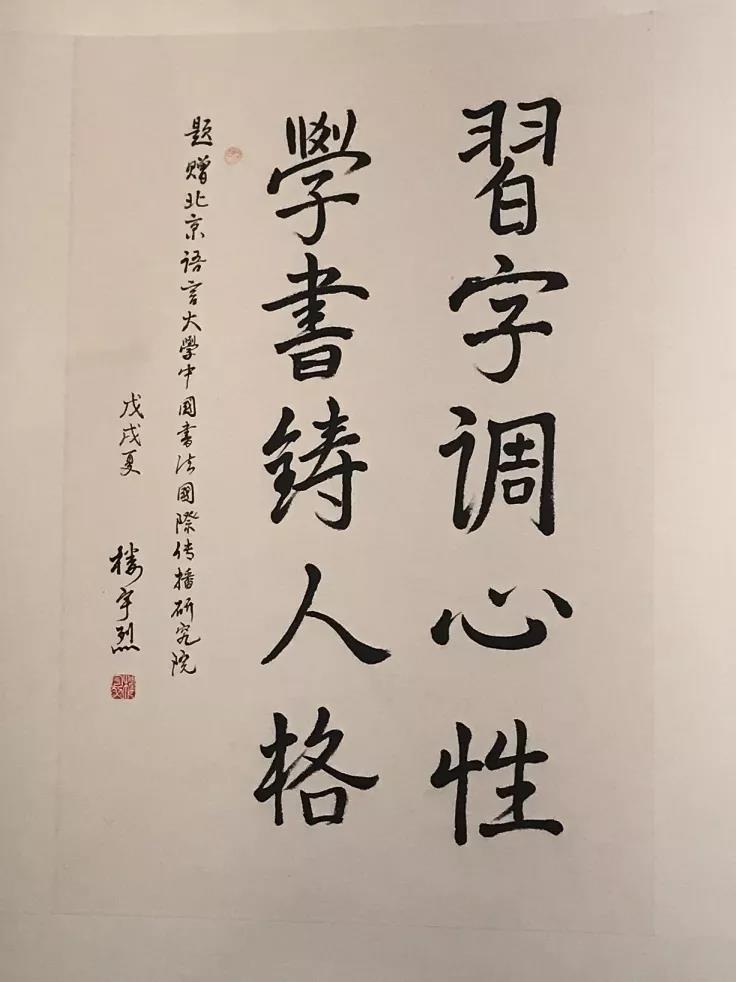 習字调心性
學書鋳人格
题赠北京语言大學中国書法國際传播研究院
戊戌夏
楼宇烈